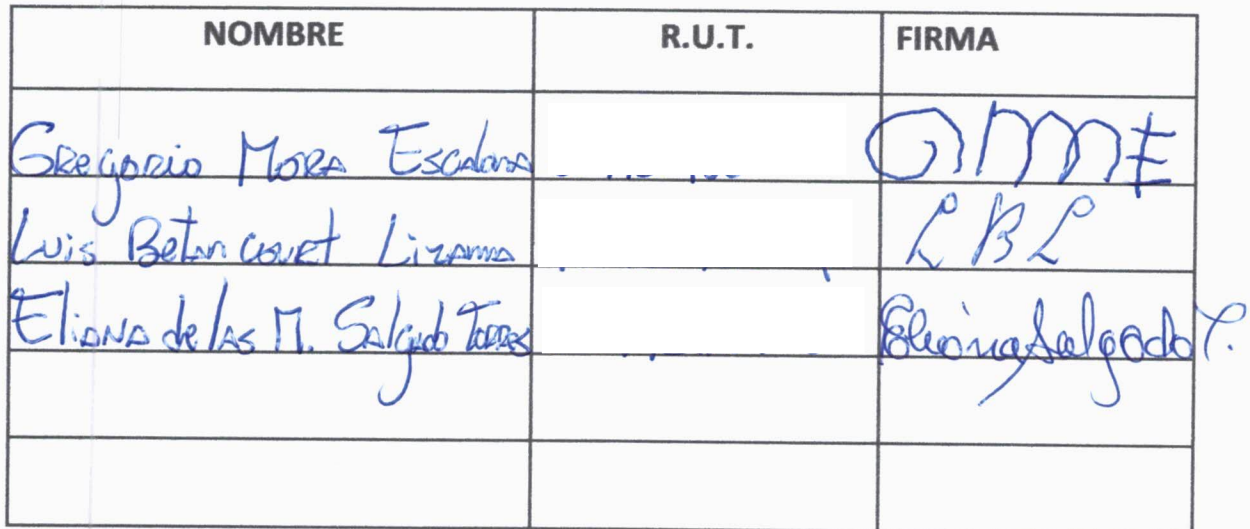 NOMBRE R.U.T. FIRMA
Gregorio Mora Escalona GMME
Luis Betancourt Lizama LBL
Eliana de las M. Salgado Torres Eliana Salgado T.